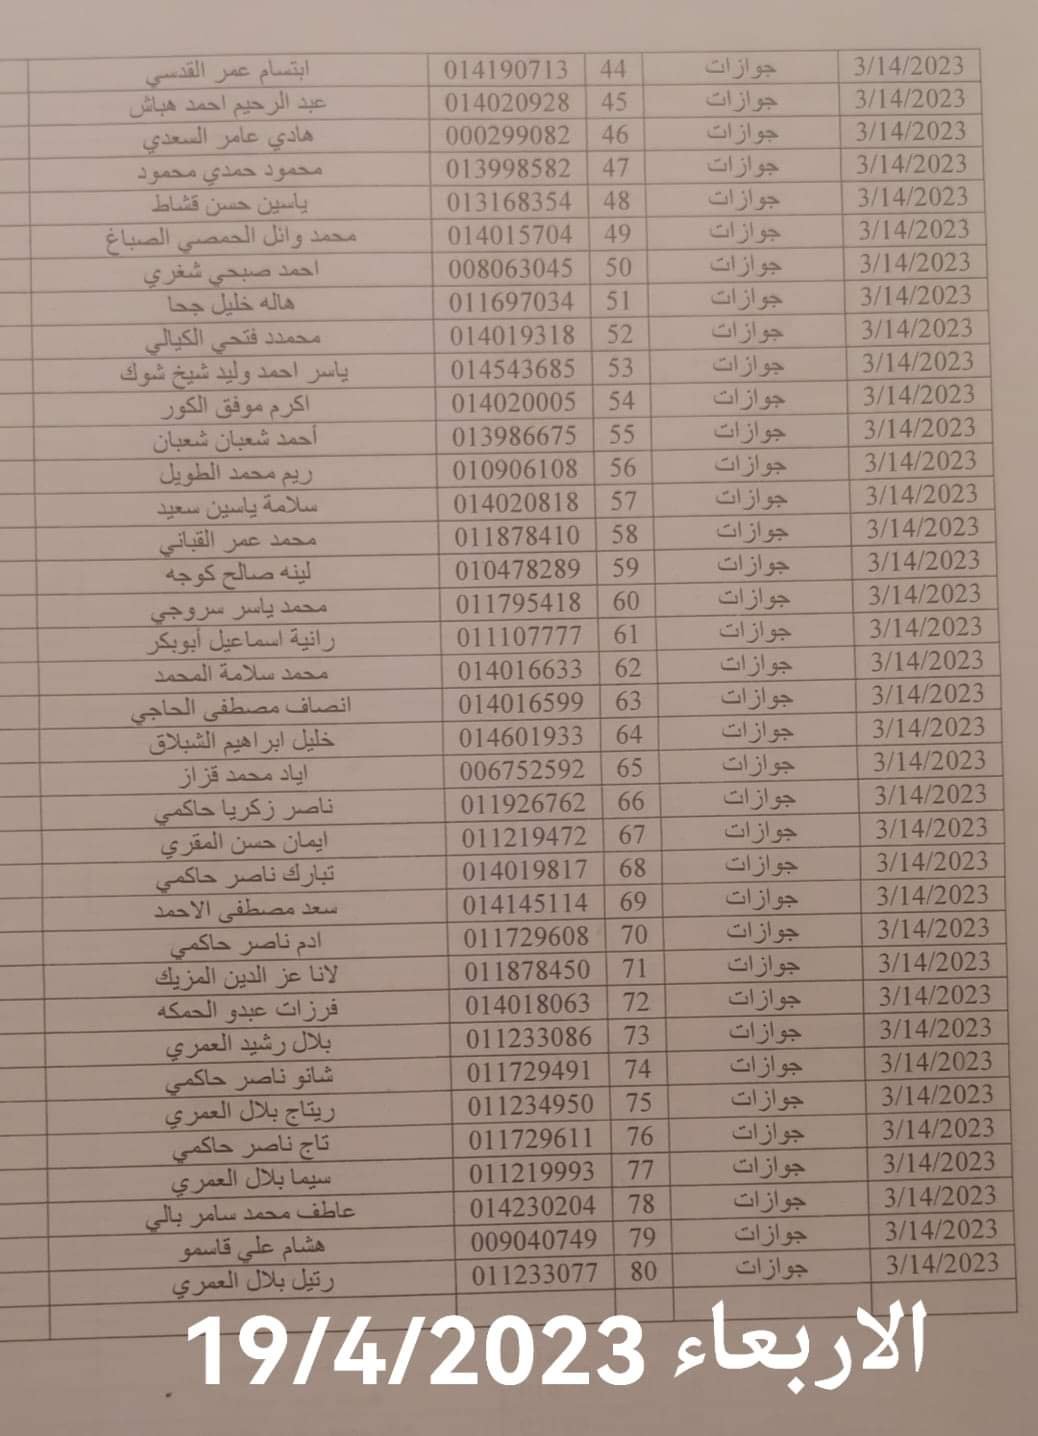 3/14/2023 جوازات 44 014190713 ابتسام عمر القدسي
3/14/2023 جوازات 45 014020928 عبد الرحيم احمد هباش
3/14/2023 جوازات 46 000299082 هادي عامر السعدي
3/14/2023 جوازات 47 013998582 محمود حمدي محمود
3/14/2023 جوازات 48 013168354 ياسين حسن قشاط
3/14/2023 جوازات 49 014015704 محمد وائل الحمصي الصباغ
3/14/2023 جوازات 50 008063045 احمد صبحي شغري
3/14/2023 جوازات 51 011697034 هاله خليل جحا
3/14/2023 جوازات 52 014019318 محمدد فتحي الكيالي
3/14/2023 جوازات 53 014543685 ياسر احمد وليد شيخ شوك
3/14/2023 جوازات 54 014020005 اكرم موفق الكور
3/14/2023 جوازات 55 013986675 أحمد شعبان شعبان
3/14/2023 جوازات 56 010906108 ريم محمد الطويل
3/14/2023 جوازات 57 014020818 سلامة ياسين سعيد
3/14/2023 جوازات 58 011878410 محمد عمر القباني
3/14/2023 جوازات 59 010478289 لينه صالح كوجه
3/14/2023 جوازات 60 011795418 محمد ياسر سروجي
3/14/2023 جوازات 61 011107777 رانية اسماعيل أبوبكر
3/14/2023 جوازات 62 014016633 محمد سلامة المحمد
3/14/2023 جوازات 63 014016599 انصاف مصطفى الحاجي
3/14/2023 جوازات 64 014601933 خليل ابراهيم الشبلاق
3/14/2023 جوازات 65 006752592 اياد محمد قزاز
3/14/2023 جوازات 66 011926762 ناصر زكريا حاكمي
3/14/2023 جوازات 67 011219472 ايمان حسن المقري
3/14/2023 جوازات 68 014019817 تبارك ناصر حاكمي
3/14/2023 جوازات 69 014145114 سعد مصطفى الاحمد
3/14/2023 جوازات 70 011729608 ادم ناصر حاكمي
3/14/2023 جوازات 71 011878450 لانا عز الدين المزيك
3/14/2023 جوازات 72 014018063 فرزات عبدو الحمكه
3/14/2023 جوازات 73 011233086 بلال رشيد العمري
3/14/2023 جوازات 74 011729491 شانو ناصر حاكمي
3/14/2023 جوازات 75 011234950 ريتاج بلال العمري
3/14/2023 جوازات 76 011729611 تاج ناصر حاكمي
3/14/2023 جوازات 77 011219993 سيما بلال العمري
3/14/2023 جوازات 78 014230204 عاطف محمد سامر بالي
3/14/2023 جوازات 79 009040749 هشام علي قاسمو
3/14/2023 جوازات 80 011233077 رتيل بلال العمري
الاربعاء 19/4/2023